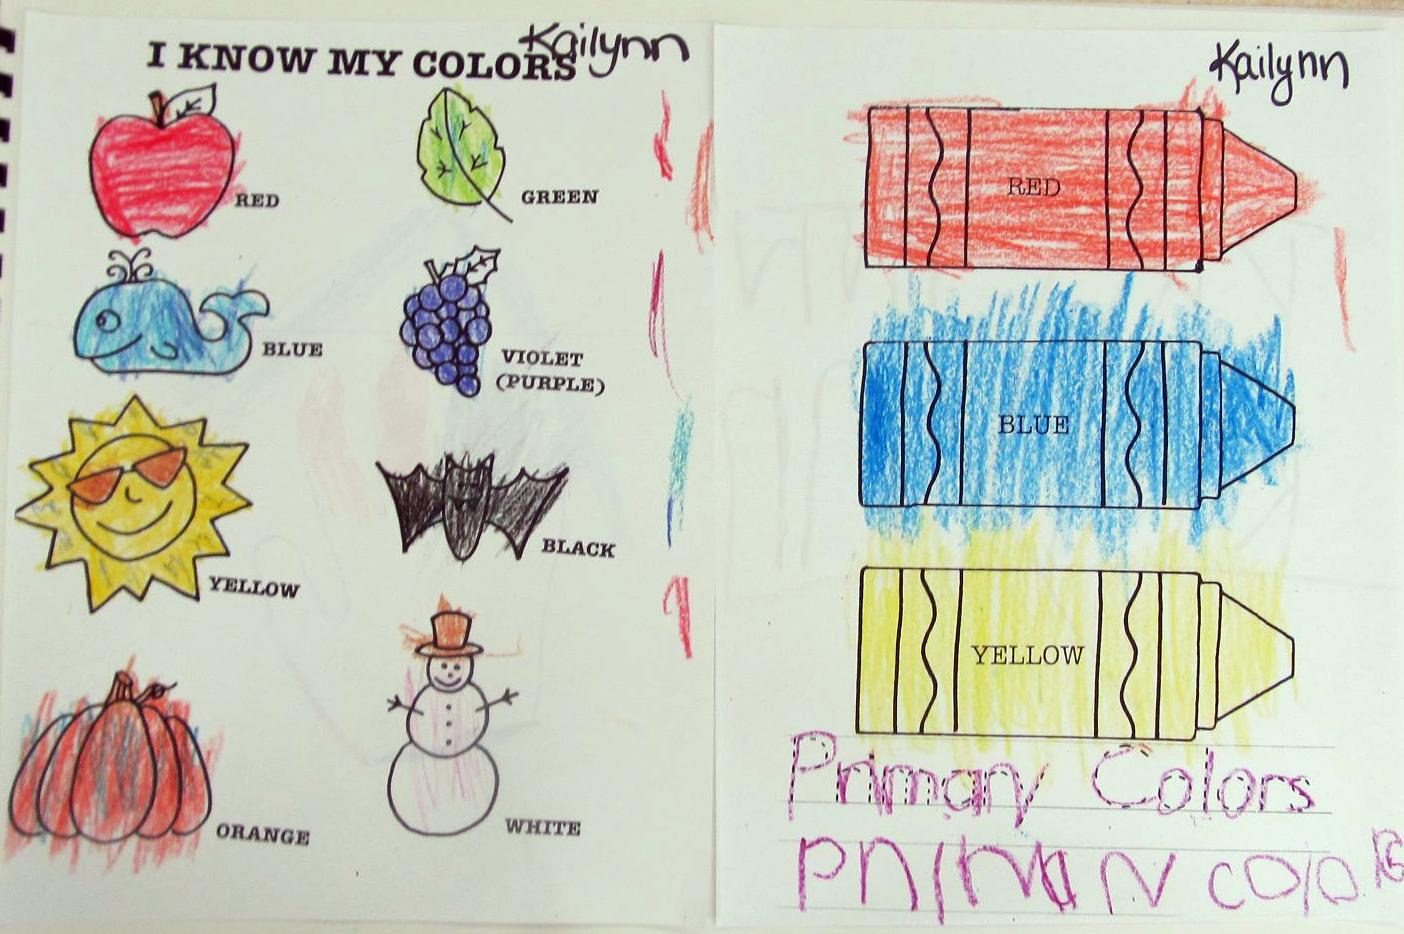 Kailynn
I KNOW MY COLORS
RED
GREEN
BLUE
VIOLET
(PURPLE)
YELLOW
BLACK
ORANGE
WHITE
Kailynn
RED
BLUE
YELLOW
Primary Colors